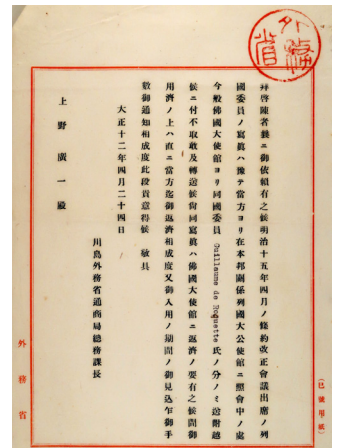 外務省
拜啓陳者曩ニ御依賴有之候明治十五年四月ノ條約改正會議出席ノ列
國委員ノ寫眞ハ豫テ當方ヨリ在本邦關係列國大公使館ニ照會中ノ處
今般佛國大使館ヨリ同國委員 Guillaume de Roquette 氏ノ分ノミ送附越
候ニ付不取敢及轉送候尙同寫眞ハ佛國大使館ニ返濟ノ要有之候間御
用濟ノ上ハ直ニ當方迄御返濟相成度又御入用ノ期間ノ御見込乍御手
數御通知相成度此段貴意得候 敬具
大正十二年四月二十四日
川島外務省通商局總務課長
上野廣一殿
(已號用紙)
外務省